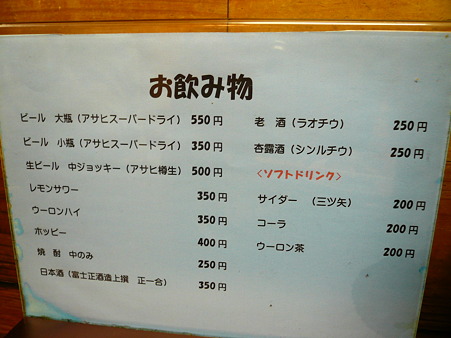 お飲み物
ビール 大瓶（アサヒスーパードライ） 550円
ビール 小瓶（アサヒスーパードライ） 350円
生ビール 中ジョッキー（アサヒ樽生） 500円
レモンサワー 350円
ウーロンハイ 350円
ホッピー 400円
焼 酎 中のみ 250円
日本酒（富士正酒造上撰 正一合） 350円
老 酒（ラオチウ） 250円
杏露酒（シンルチウ） 250円
＜ソフトドリンク＞
サイダー （三ツ矢） 200円
コーラ 200円
ウーロン茶 200円